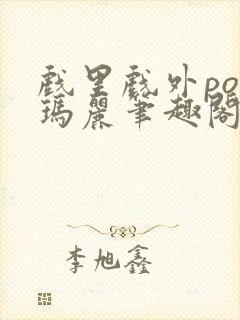 戲里戲外po
瑪麗筆趣閣
李旭鑫